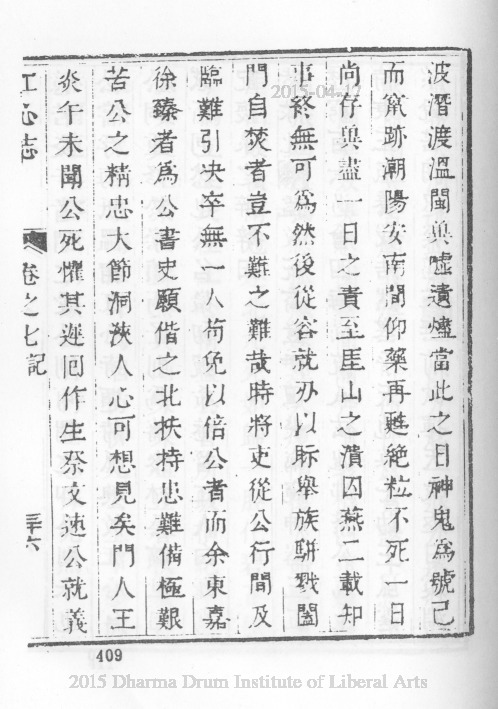 波潛渡溫閩兾噓遺燼當此之日神鬼為號已
而竄跡潮陽安南間仰藥再甦絶粒不死一日
尚存兾盡一日之責至厓山之潰囚燕二載知
事終無可為然後從容就刃以眎舉族駢戮闔
門自焚者豈不難之難哉時將吏從公行間及
臨難引决卒無一人茍免以倍公者而余東嘉
徐臻者為公書史願偕之北扶持患難備極艱
苦公之精忠大節洞浹人心可想見矣門人王
炎午未聞公死懼其遲回作生祭文速公就義
江心志
卷之七記
三十六
409
2015-04-17
2015 Dharma Drum Institute of Liberal Arts